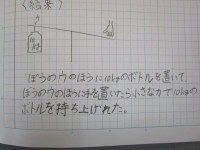 (結果)
10kg
ぼうのウのほうに10kgのボトルを置いて、
ぼうのウのほうに手を置いたら小さな力で10kgの
ボトルを持ち上げれた。